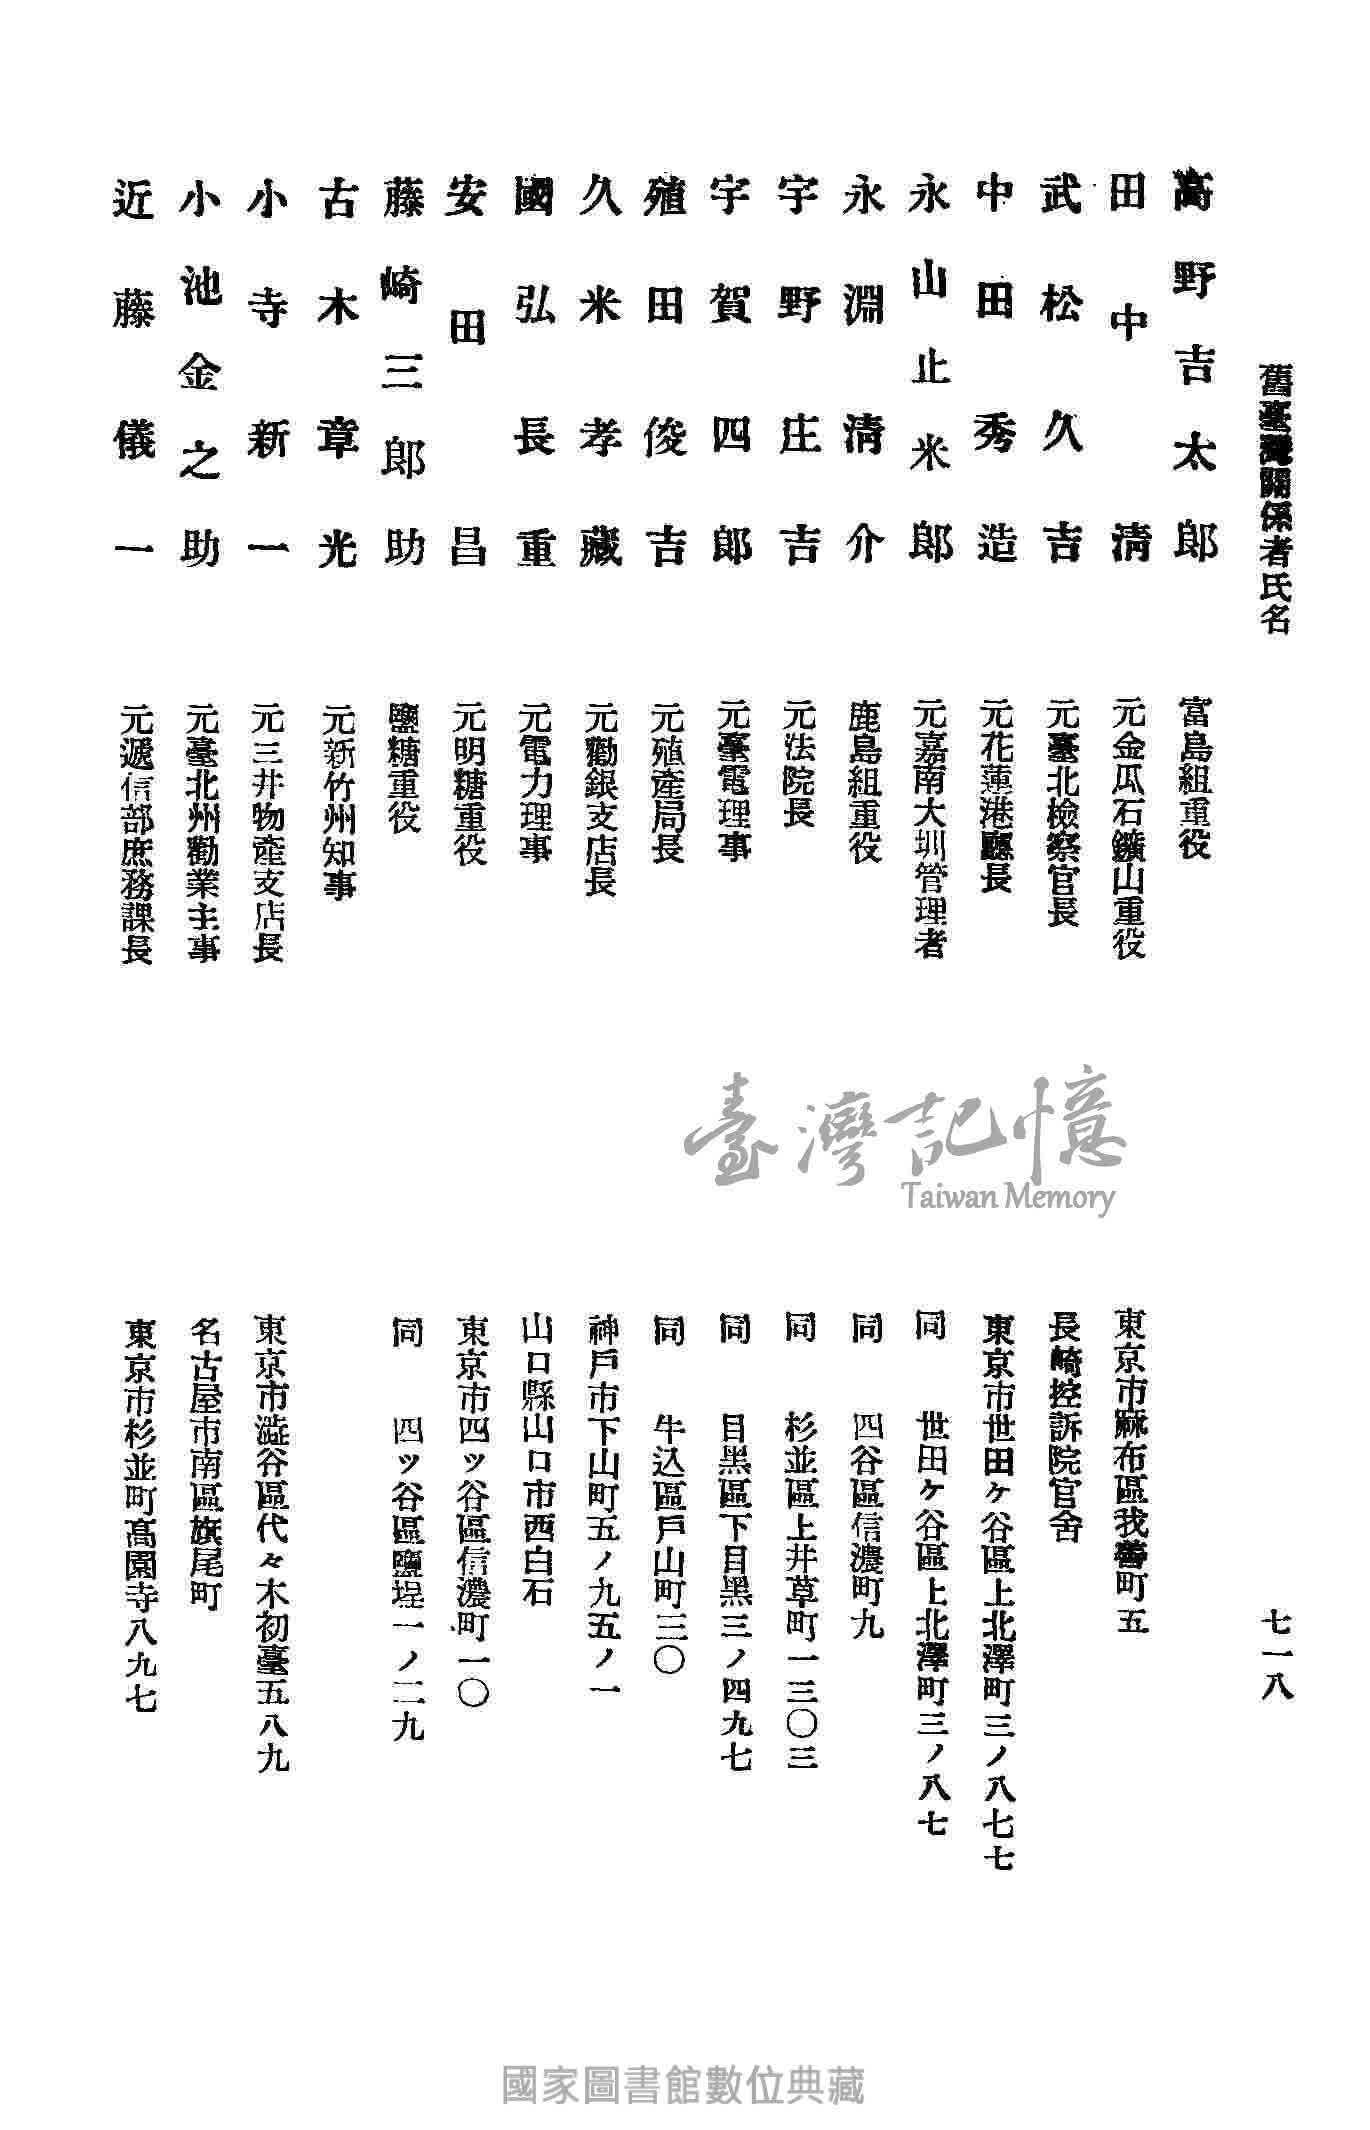 舊臺灣關係者氏名
七一八
高野吉太郎 富島組重役
田中清 元金瓜石鑛山重役 東京市麻布區我善町五
武松久吉 元臺北檢察官長 長崎控訴院官舍
中田秀造 元花蓮港廳長 東京市世田ヶ谷區上北澤町三ノ八七七
永山止米郎 元嘉南大圳管理者 同 世田ヶ谷區上北澤町三ノ八七
永淵清介 鹿島組重役 同 四谷區信濃町九
宇野庄吉 元法院長 同 杉並區上井草町一三〇三
宇賀四郎 元臺電理事 同 目黑區下目黑三ノ四九七
殖田俊吉 元殖產局長 同 牛込區戶山町三〇
久米孝藏 元勸銀支店長 神戶市下山町五ノ九五ノ一
國弘長重 元電力理事 山口縣山口市西白石
安田昌 元明糖重役 東京市四ッ谷區信濃町一〇
藤崎三郎助 鹽糖重役 同 四ッ谷區鹽埕一ノ二九
古木章光 元新竹州知事
小寺新一 元三井物產支店長 東京市澁谷區代々木初臺五八九
小池金之助 元臺北州勸業主事 名古屋市南區旗尾町
近藤儀一 元遞信部庶務課長 東京市杉並町高園寺八九七
臺灣記憶
Taiwan Memory
國家圖書館數位典藏